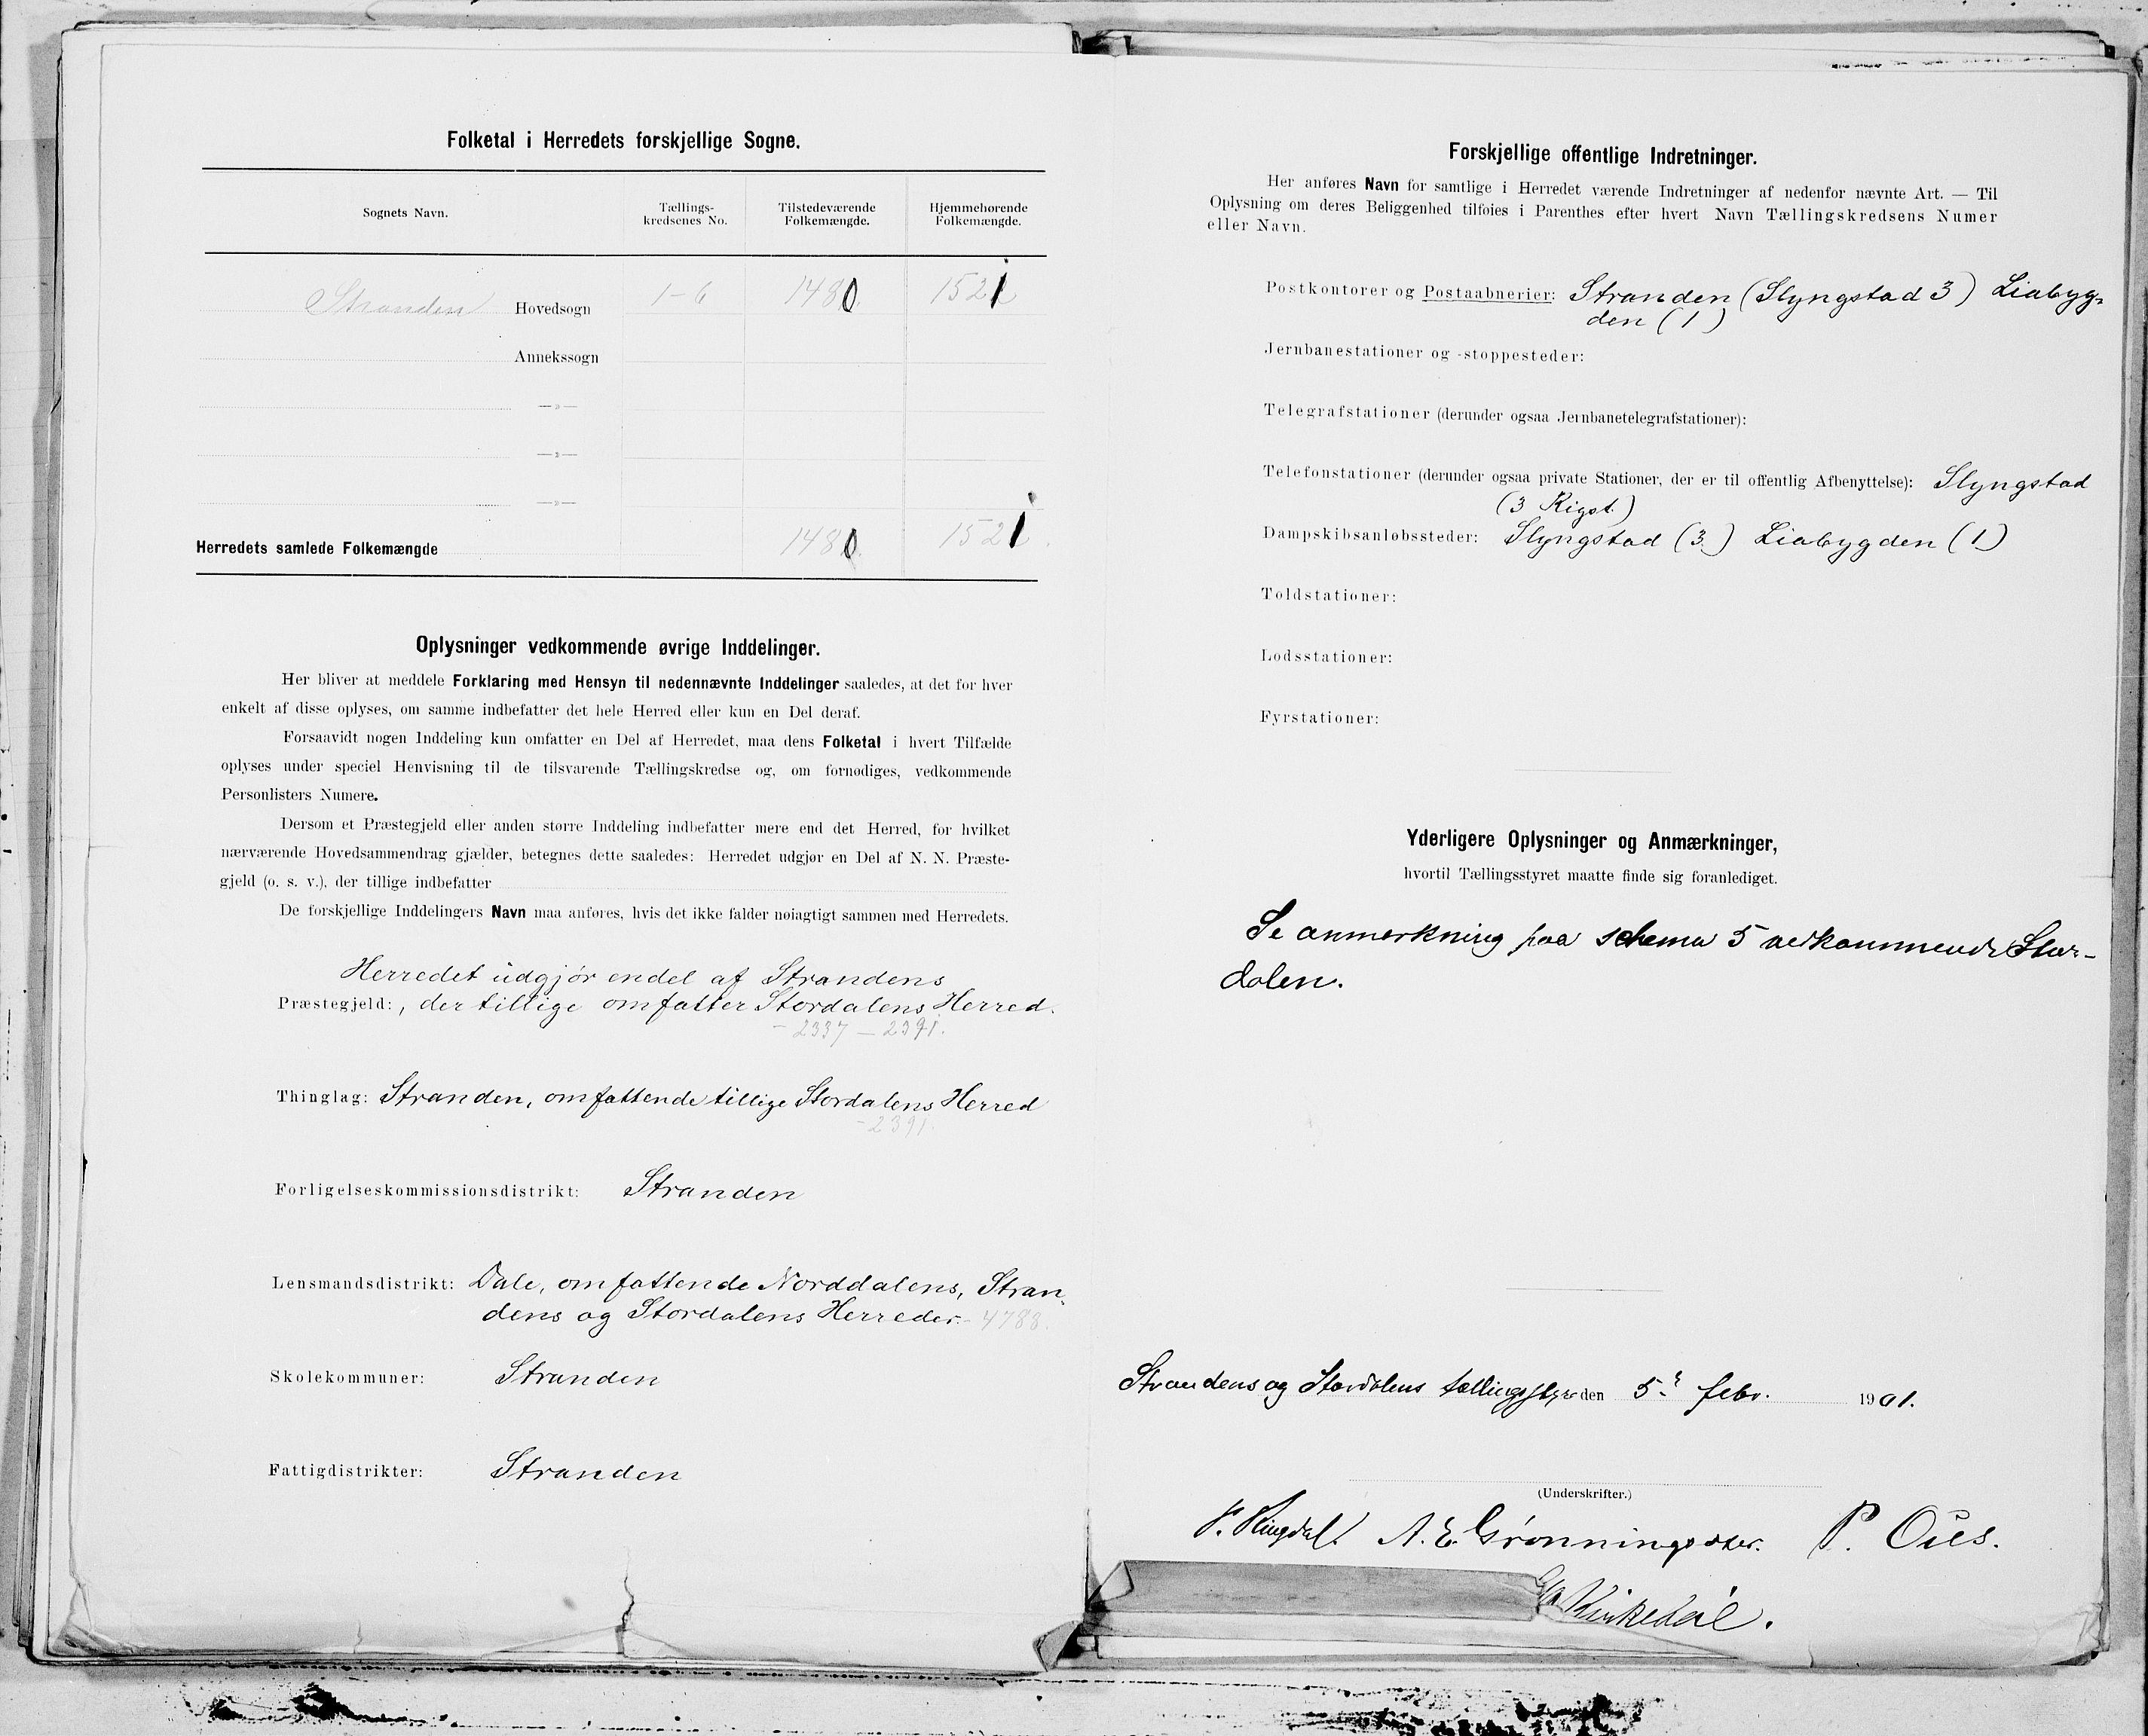 Folketal i Herredets forskjellige Sogne.
Sognets Navn.
Tællings-
kredsenes No.
Tilstedeværende
Folkemængde.
Hjemmehørende
Folkemængde.
Stranden Hovedsogn 1-6 1480 1521
Annekssogn
—»—
—»—
—»—
Herredets samlede Folkemængde 1480 1521
Oplysninger vedkommende øvrige Inddelinger.
Her bliver at meddele Forklaring med Hensyn til nedennævnte Inddelinger saaledes, at det for hver
enkelt af disse oplyses, om samme indbefatter det hele Herred eller kun en Del deraf.
Forsaavidt nogen Inddeling kun omfatter en Del af Herredet, maa dens Folketal i hvert Tilfælde
oplyses under speciel Henvisning til de tilsvarende Tællingskredse og, om fornødiges, vedkommende
Personlisters Numere.
Dersom et Præstegjeld eller anden større Inddeling indbefatter mere end det Herred, for hvilket
nærværende Hovedsammendrag gjælder, betegnes dette saaledes: Herredet udgjør en Del af N. N. Præste-
gjeld (o. s. v.), der tillige indbefatter
De forskjellige Inddelingers Navn maa anføres, hvis det ikke falder nøiagtigt sammen med Herredets.
Herredet udgjør endel af Strandens
Præstegjeld: , der tillige omfatter Stordalens Herred.
- 2337 - 2391.
Thinglag: Stranden, omfattende tillige Stordalens Herred
- 2391.
Forligelseskommissionsdistrikt: Stranden
Lensmandsdistrikt: Dale, omfattende Norddalens, Stran-
dens og Stordalens Herreder. - 4788.
Skolekommuner: Stranden
Fattigdistrikter: Stranden
Forskjellige offentlige Indretninger.
Her anføres Navn for samtlige i Herredet værende Indretninger af nedenfor nævnte Art. — Til
Oplysning om deres Beliggenhed tilføies i Parenthes efter hvert Navn Tællingskredsens Numer
eller Navn.
Postkontorer og Postaabnerier: Stranden (Slyngstad 3) Liabyg=
den (1)
Jernbanestationer og -stoppesteder:
Telegrafstationer (derunder ogsaa Jernbanetelegrafstationer):
Telefonstationer (derunder ogsaa private Stationer, der er til offentlig Afbenyttelse): Slyngstad
(3 Rigst.)
Dampskibsanløbssteder: Slyngstad (3) Liabygden (1)
Toldstationer:
Lodsstationer:
Fyrstationer:
Yderligere Oplysninger og Anmærkninger,
hvortil Tællingsstyret maatte finde sig foranlediget.
Se anmerkning paa schema 5 vedkommende Stor-
dalen.
Strandens og Stordalens tællingsstyre den 5. febr. 1901.
(Underskrifter.)
A. E. Grønningsæter. P. Oies.